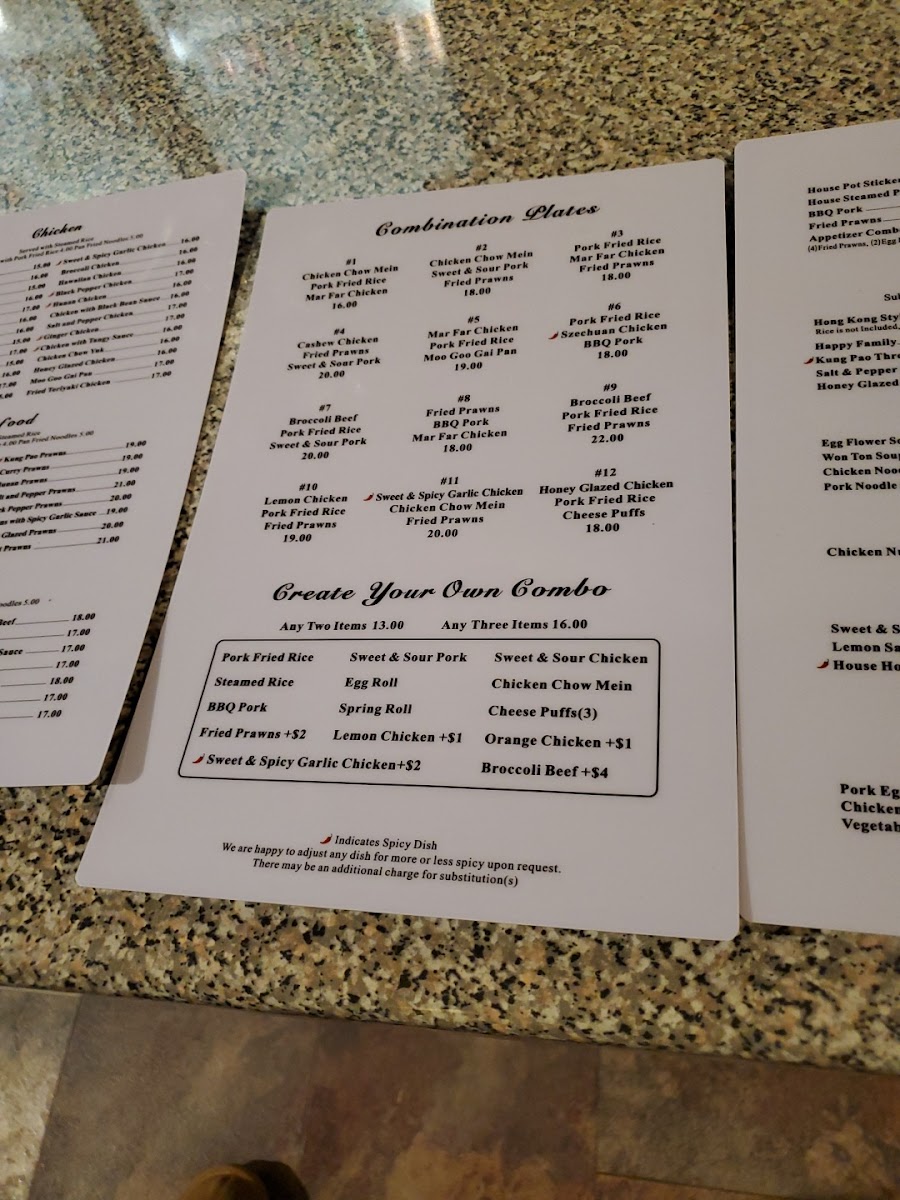 Chicken
Served with Steamed Rice
with Pork Fried Rice 4.00 Pan Fried Noodles 5.00
15.00 Sweet & Spicy Garlic Chicken 16.00
16.00 Broccoli Chicken 16.00
15.00 Hawaiian Chicken 17.00
16.00 Black Pepper Chicken 16.00
17.00 Hunan Chicken 17.00
16.00 Chicken with Black Bean Sauce 16.00
16.00 Salt and Pepper Chicken 17.00
15.00 Ginger Chicken 17.00
17.00 Chicken with Tangy Sauce 16.00
15.00 Chicken Chow Yuk 16.00
16.00 Honey Glazed Chicken 16.00
17.00 Moo Goo Gai Pan 17.00
Fried Teriyaki Chicken 17.00
food
Steamed Rice
4.00 Pan Fried Noodles 5.00
Kung Pao Prawns 19.00
Curry Prawns 19.00
Hunan Prawns 19.00
and Pepper Prawns 21.00
Pepper Prawns 20.00
with Spicy Garlic Sauce 19.00
Glazed Prawns 20.00
Prawns 21.00
Noodles 5.00
Beef 18.00
17.00
Sauce 17.00
17.00
18.00
17.00
17.00
Combination Plates
#1
Chicken Chow Mein
Pork Fried Rice
Mar Far Chicken
16.00
#2
Chicken Chow Mein
Sweet & Sour Pork
Fried Prawns
18.00
#3
Pork Fried Rice
Mar Far Chicken
Fried Prawns
18.00
#4
Cashew Chicken
Fried Prawns
Sweet & Sour Pork
20.00
#5
Mar Far Chicken
Pork Fried Rice
Moo Goo Gai Pan
19.00
#6
Pork Fried Rice
Szechuan Chicken
BBQ Pork
18.00
#7
Broccoli Beef
Pork Fried Rice
Sweet & Sour Pork
20.00
#8
Fried Prawns
BBQ Pork
Mar Far Chicken
18.00
#9
Broccoli Beef
Pork Fried Rice
Fried Prawns
22.00
#10
Lemon Chicken
Pork Fried Rice
Fried Prawns
19.00
#11
Sweet & Spicy Garlic Chicken
Chicken Chow Mein
Fried Prawns
20.00
#12
Honey Glazed Chicken
Pork Fried Rice
Cheese Puffs
18.00
Create Your Own Combo
Any Two Items 13.00 Any Three Items 16.00
Pork Fried Rice Sweet & Sour Pork Sweet & Sour Chicken
Steamed Rice Egg Roll Chicken Chow Mein
BBQ Pork Spring Roll Cheese Puffs(3)
Fried Prawns +$2 Lemon Chicken +$1 Orange Chicken +$1
Sweet & Spicy Garlic Chicken+$2 Broccoli Beef +$4
Indicates Spicy Dish
We are happy to adjust any dish for more or less spicy upon request.
There may be an additional charge for substitution(s)
House Pot Sticke
House Steamed P
BBQ Pork
Fried Prawns
Appetizer Comb
(4)Fried Prawns, (2)Egg
Su
Hong Kong Sty
Rice is not Included,
Happy Family
Kung Pao Thre
Salt & Pepper
Honey Glazed
Egg Flower So
Won Ton Soup
Chicken Nood
Pork Noodle
Chicken Nu
Sweet & S
Lemon Sa
House Ho
Pork Eg
Chicken
Vegetab